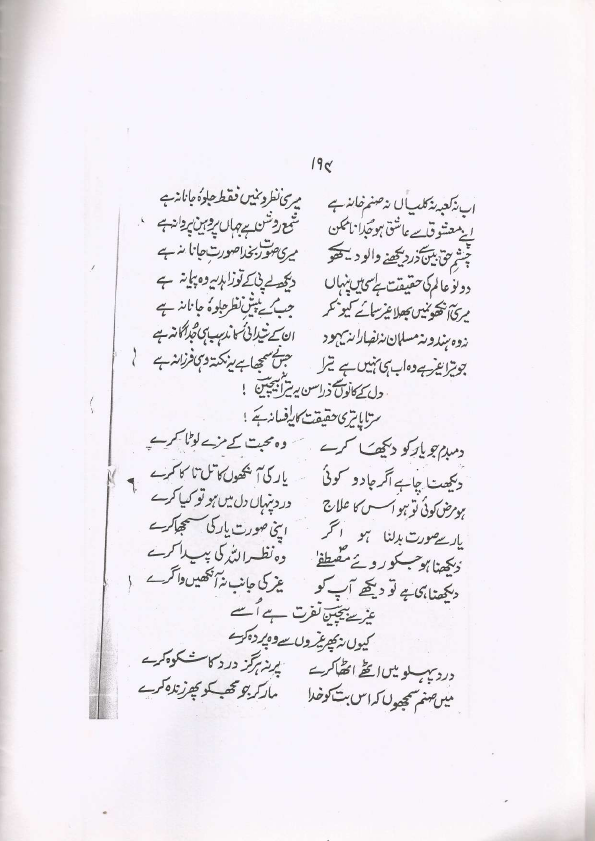 ۱۹۴
اب نہ کعبہ نہ کلیساں نہ صنم خانہ ہے میری نظروں میں فقط جلوۂ جانانہ ہے
اپنے معشوق سے عاشق ہو جُدا نا ممکن شمع روشن ہے جہاں پر وہیں پروانہ ہے
چشمِ حق بیں سے ذرا دیکھنے والو دیکھو میری صورت بخدا صورت جانا نہ ہے
دونو عالم کی حقیقت ہے اسی میں پنہاں دیکھ لے پی کے تو زاہد یہ وہ پیما نہ ہے
میری آنکھوں میں بھلا غیر سمائے کیونکر جب مرے پیش نظر جلوۂ جانانہ ہے
نہ وہ ہندو نہ مسلمان نہ نصارا نہ یہود ان کے شیدائی کا مذہب ہی جُداگانہ ہے
جو ترا غیر ہے وہ اب ہی نہیں ہے تیرا جس نے سمجھا ہے یہ نکتہ وہی فرزانہ ہے
دل کے کانوں سے ذرا سن یہ ترا بیچین !
سرتاپا تیری حقیقت کا یہ افسانہ ہے !
دمبدم جو یار کو دیکھا کرے وہ محبت کے مزے لوٹا کرے
دیکھنا چاہے اگر جادو کوئی یار کی آنکھوں کا تل تا کا کرے
ہو مرض کوئی تو ہو اس کا علاج درد پنہاں دل میں ہو تو کیا کرے
یار سے صورت بدلنا ہو اگر اپنی صورت یار کی سمجھا کرے
دیکھنا ہو جسکو روئے مصطفےٰؐ وہ نظر اللہ کی پیدا کرے
دیکھنا ہی ہے تو دیکھے آپ کو غیر کی جانب نہ آنکھیں وا کرے
غیر سے بیچین نفرت ہے اُسے
کیوں نہ پھر غیروں سے وہ پردہ کرے
درد پہلو میں اٹھے اٹھا کرے پر نہ ہرگز درد کا شکوہ کرے
میں صنم سمجھوں کہ اس بت کو خدا مار کر جو مجھکو پھر زندہ کرے